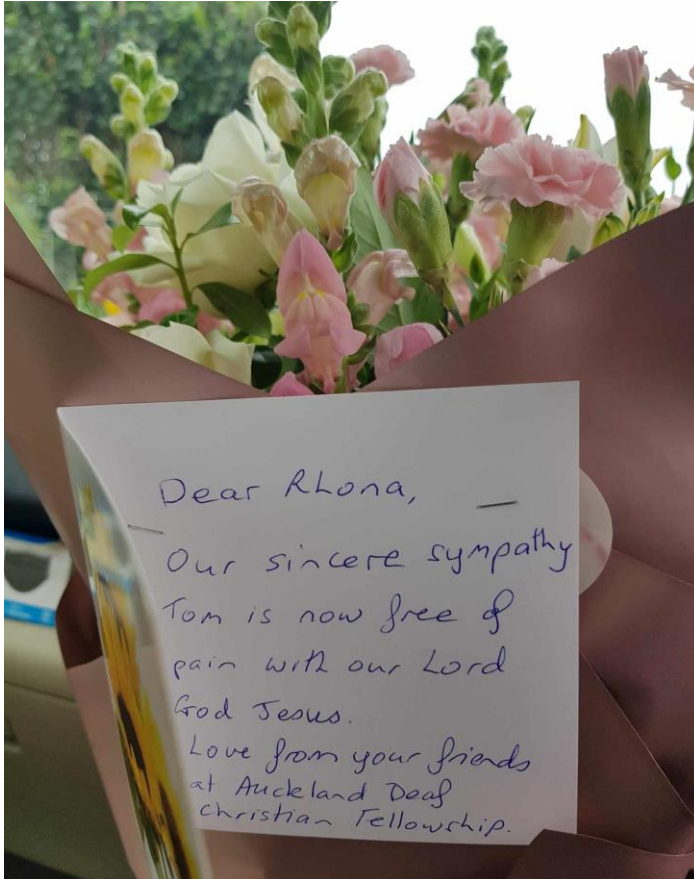 Dear Rhona,
Our sincere sympathy
Tom is now free of
pain with our Lord
God Jesus.
Love from your friends
at Auckland Deaf
Christian Fellowship.